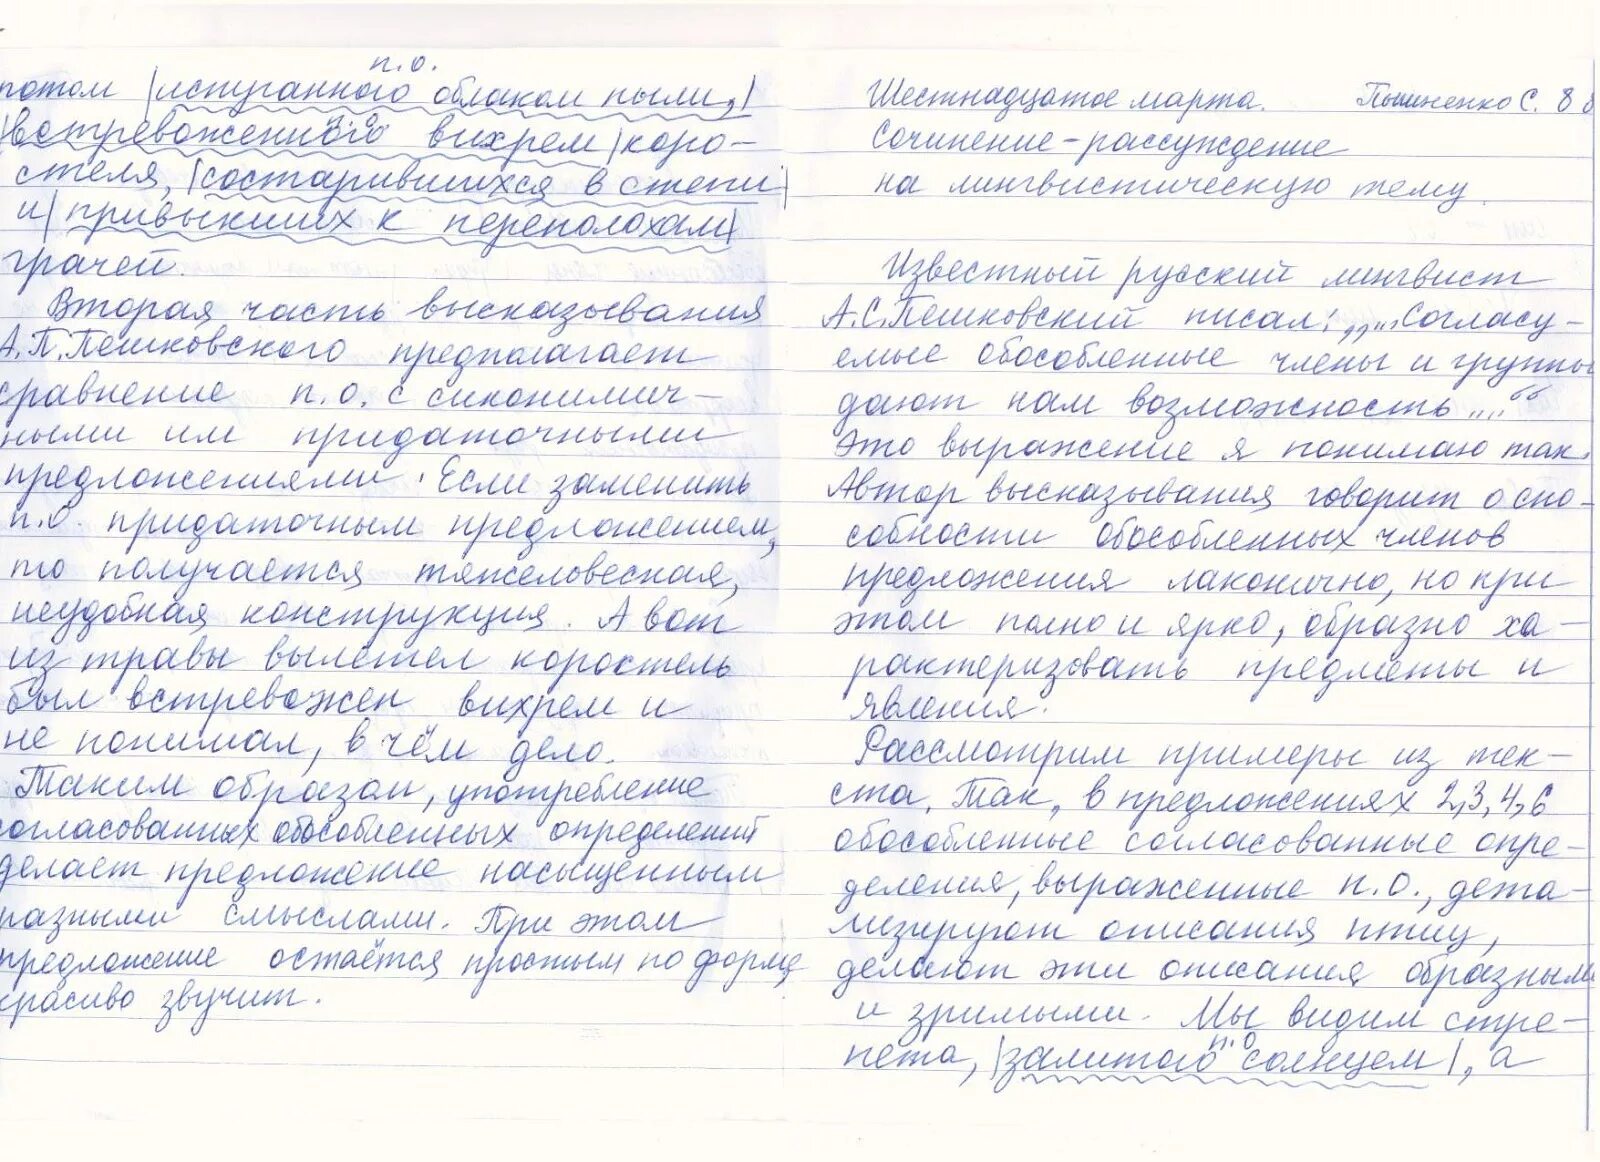 Шестнадцатое марта. Пышненко С. 8 в
Сочинение-рассуждение
на лингвистическую тему.
Известный русский лингвист
А.С.Пешковский писал: „„...Согласу-
емые обособленные члены и группы
дают нам возможность „...“
Это выражение я понимаю так.
Автор высказывания говорит о спо-
собности обособленных членов
предложения лаконично, но при
этом полно и ярко, образно ха-
рактеризовать предметы и
явления.
Рассмотрим примеры из тек-
ста. Так, в предложениях 2,3,4,6
обособленные согласованные опре-
деления, выраженные п.о., дета-
лизируют описания птиц,
делают эти описания образными
и зримыми. Мы видим стре-
п.о
пета, |залитого солнцем|, а
п.о.
потом |испуганного облаком пыли,|
|встревоженного вихрем| коро-
стеля, |состарившихся в степи|
и |привыкших к переполохам|
грачей.
Вторая часть высказывания
А.П.Пешковского предполагает
сравнение п.о. с синонимич-
ными им придаточными
предложениями. Если заменить
п.о. придаточным предложением,
то получается тяжеловесная,
неудобная конструкция. А вот
из травы вылетел коростель
был встревожен вихрем и
не понимал, в чём дело.
Таким образом, употребление
согласованных обособленных определений
делает предложение насыщенным
разными смыслами. При этом
предложение остаётся простым по форме
красиво звучит.